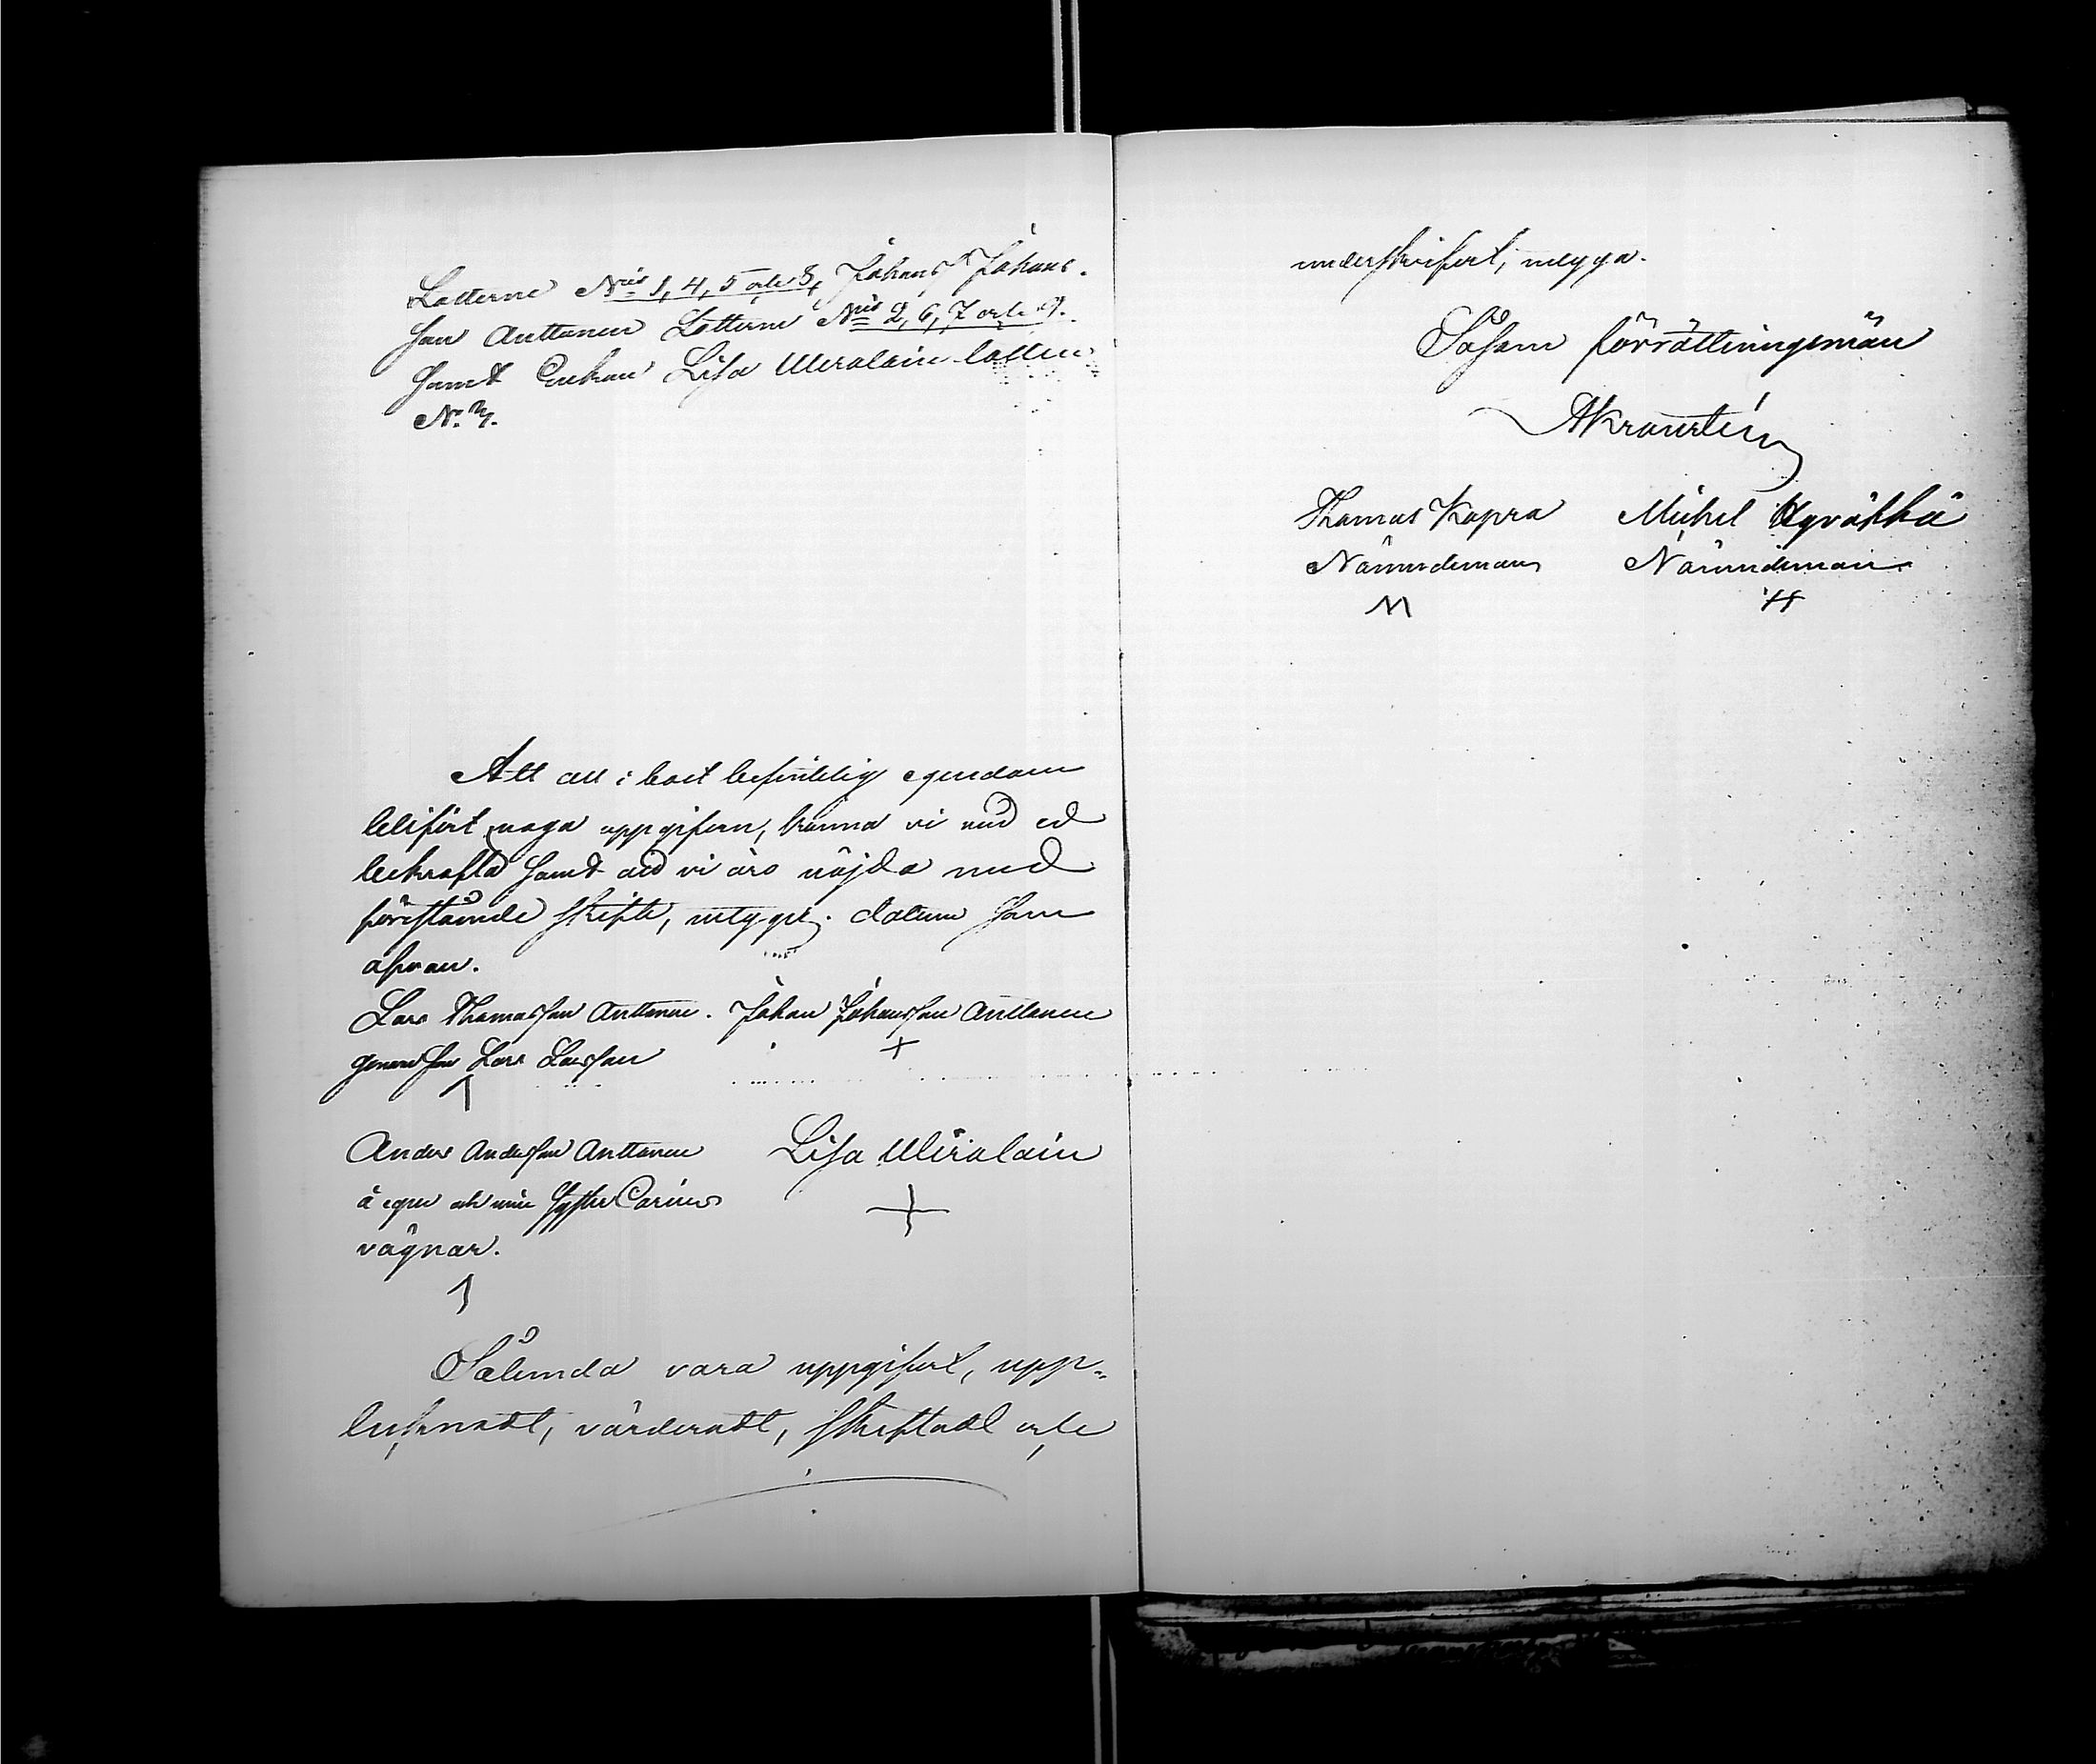 Lotterne N:is 1, 4, 5 och 8, Johans Johans.
son Anttonen Lotterne N:is 2, 6, 7 och 9.
samt Enkan Lisa Meralain lotten
No 3.
Att all i boet befintlig egendom
blifvit noga uppgifven, kunna vi med ed
bekräfta samt att vi äro nöjda med
förestående skifte, intyga; datum som
ofvan.
Lars Thomasson Anttonen. Johan Johansson Anttonen
genom son Lars Larsson
Anders Andersson Anttonen Lisa Miralain
å egne och min syster Carins
vägnar.
Sålunda vara uppgifvet, upp-
tecknadt, värderadt, skiftadt och
underskrifvet, intyga.
Såsom förrättningsmän
AKronstéin
Thomas Kopra Michel Hyväkkä
Nämndeman Nämndeman